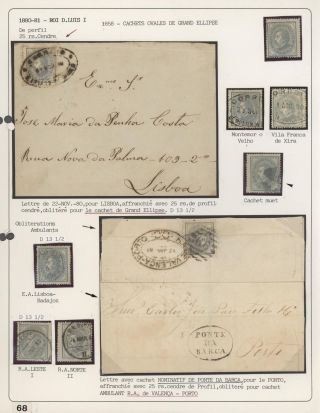 1880-81 - ROI D.LUIS I
1858 - CACHETS OVALES DE GRAND ELLIPSE
De perfil
25 rs.Cendre.
Ill.mo Sr.
José Maria da Penha Costa
Rua Nova da Palma - 109 - 2º
Lisboa
Montemor o
Velho
Vila Franca
de Xira
Lettre de 22-NOV.-80,pour LISBOA,affranchie avec 25 rs.de profil
cendré,oblitéré pour le cachet de Grand Ellipse. D 13 1/2
Cachet muet
Obliterations
Ambulants
D 13 1/2
E.A.Lisboa-
Badajoz
R.A.LESTE
I
R.A.NORTE
II
PONTE
DA
BARCA
Porto
Lettre avec cachet NOMINATIF DE PONTE DA BARCA,pour le PORTO,
affranchie avec 25 rs.cendre de Profil,oblitéré pour cachet
AMBULANT R.A. de VALENÇA - PORTO
68